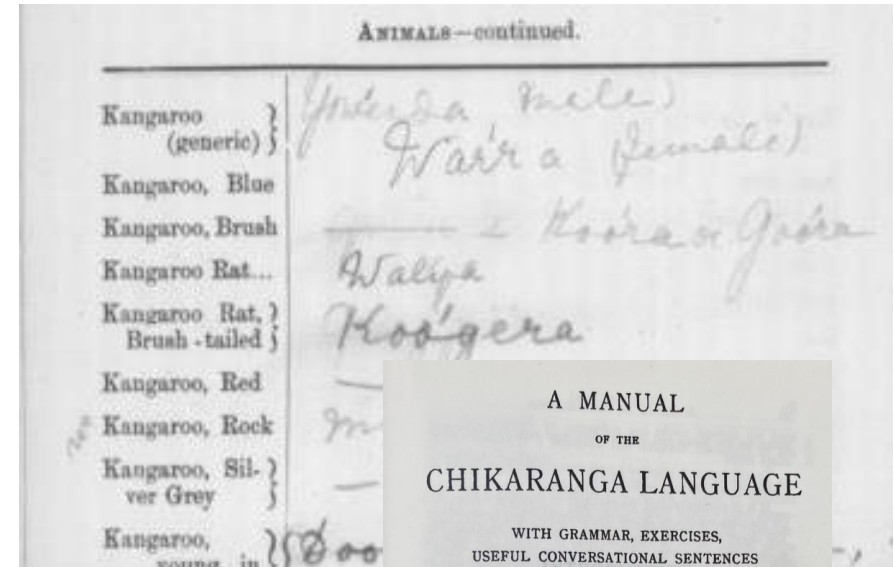 ANIMALS—continued.
Kangaroo (generic) } male)
Warra (female)
Kangaroo, Blue
Kangaroo, Brush Koóra or Goóra
Kangaroo Rat... Walya
Kangaroo Rat, Brush-tailed } Koo'gera
Kangaroo, Red —
Kangaroo, Rock
Kangaroo, Sil-
ver Grey } —
Kangaroo,
young in
A MANUAL
OF THE
CHIKARANGA LANGUAGE
WITH GRAMMAR, EXERCISES,
USEFUL CONVERSATIONAL SENTENCES